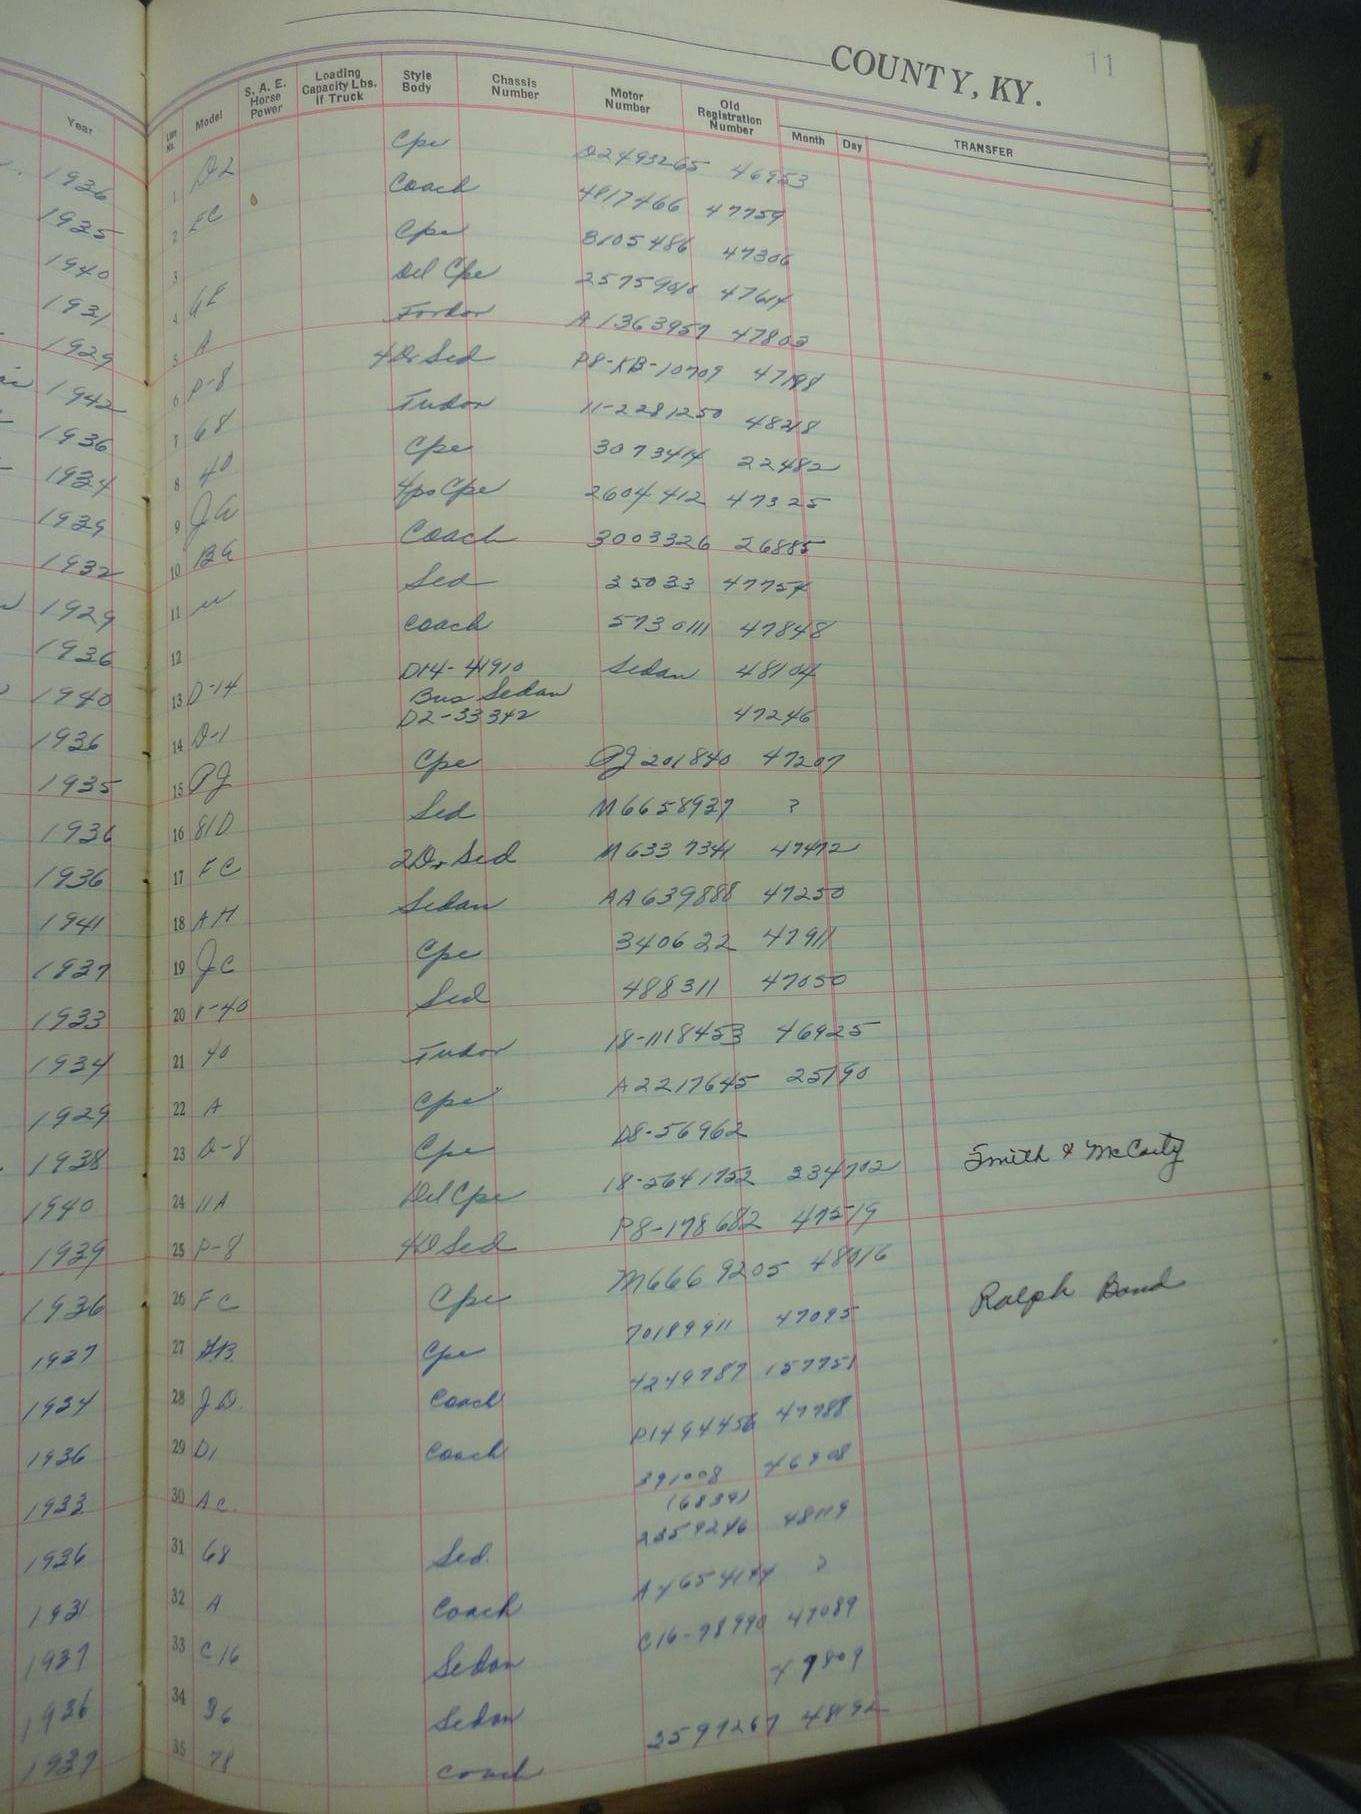 COUNTY, KY. 11
Year Line No. Model S. A. E. Horse Power Loading Capacity Lbs. If Truck Style Body Chassis Number Motor Number Old Registration Number Month Day TRANSFER
1936 1 D2 Cpe D2493265 46953
1935 2 EC Coach 4817466 47759
1940 3 Cpe 8105486 47306
1931 4 Del Cpe 47614
1929 5 A Fordor A 1363957 47803
1942 6 P-8 4Dr Sed P8-KB-10709
1936 7 68 Tudor 11-2281250 48218
1934 8 40 Cpe 3073414 22482
1939 9 4ps Cpe 2604412 47325
1932 10 BG Coach 3003326 26885
1929 11 Sed 35033 47754
1936 12 Coach 5730111 47848
1940 13 D-14 D14-41910 Sedan 48104
Bus Sedan
1936 14 D-1 D2-33342 47246
1935 15 PJ Cpe PJ 201840 47207
1936 16 81D Sed M6658937 ?
1936 17 FC 2Dr Sed M6337341 47472
1941 18 AH Sedan AA639888 47250
1937 19 JC Cpe 340622 47911
1933 20 Sed 488311 47050
1934 21 40 Tudor 18-1118453 46925
1929 22 A Cpe A2217645 25190
1938 23 D-8 Cpe D8-56962
1940 24 11A Del Cpe 18-5641752 234702 Smith & McCarty
1939 25 P-8 4D Sed P8-178682 47519
1936 26 FC Cpe M6669205 48016 Ralph Bond
1937 27 Cpe 70189911 47095
1934 28 JD. Coach 4249787 157751
1936 29 D1 Coach 47788
1933 30 Ac. 391008 46908
1936 31 68 Sed. 48119
1931 32 A Coach ?
1937 33 C16 Sedan C16-78990 47089
1936 34 36 Sedan 47809
1937 35 78 Coach 3597267 48192